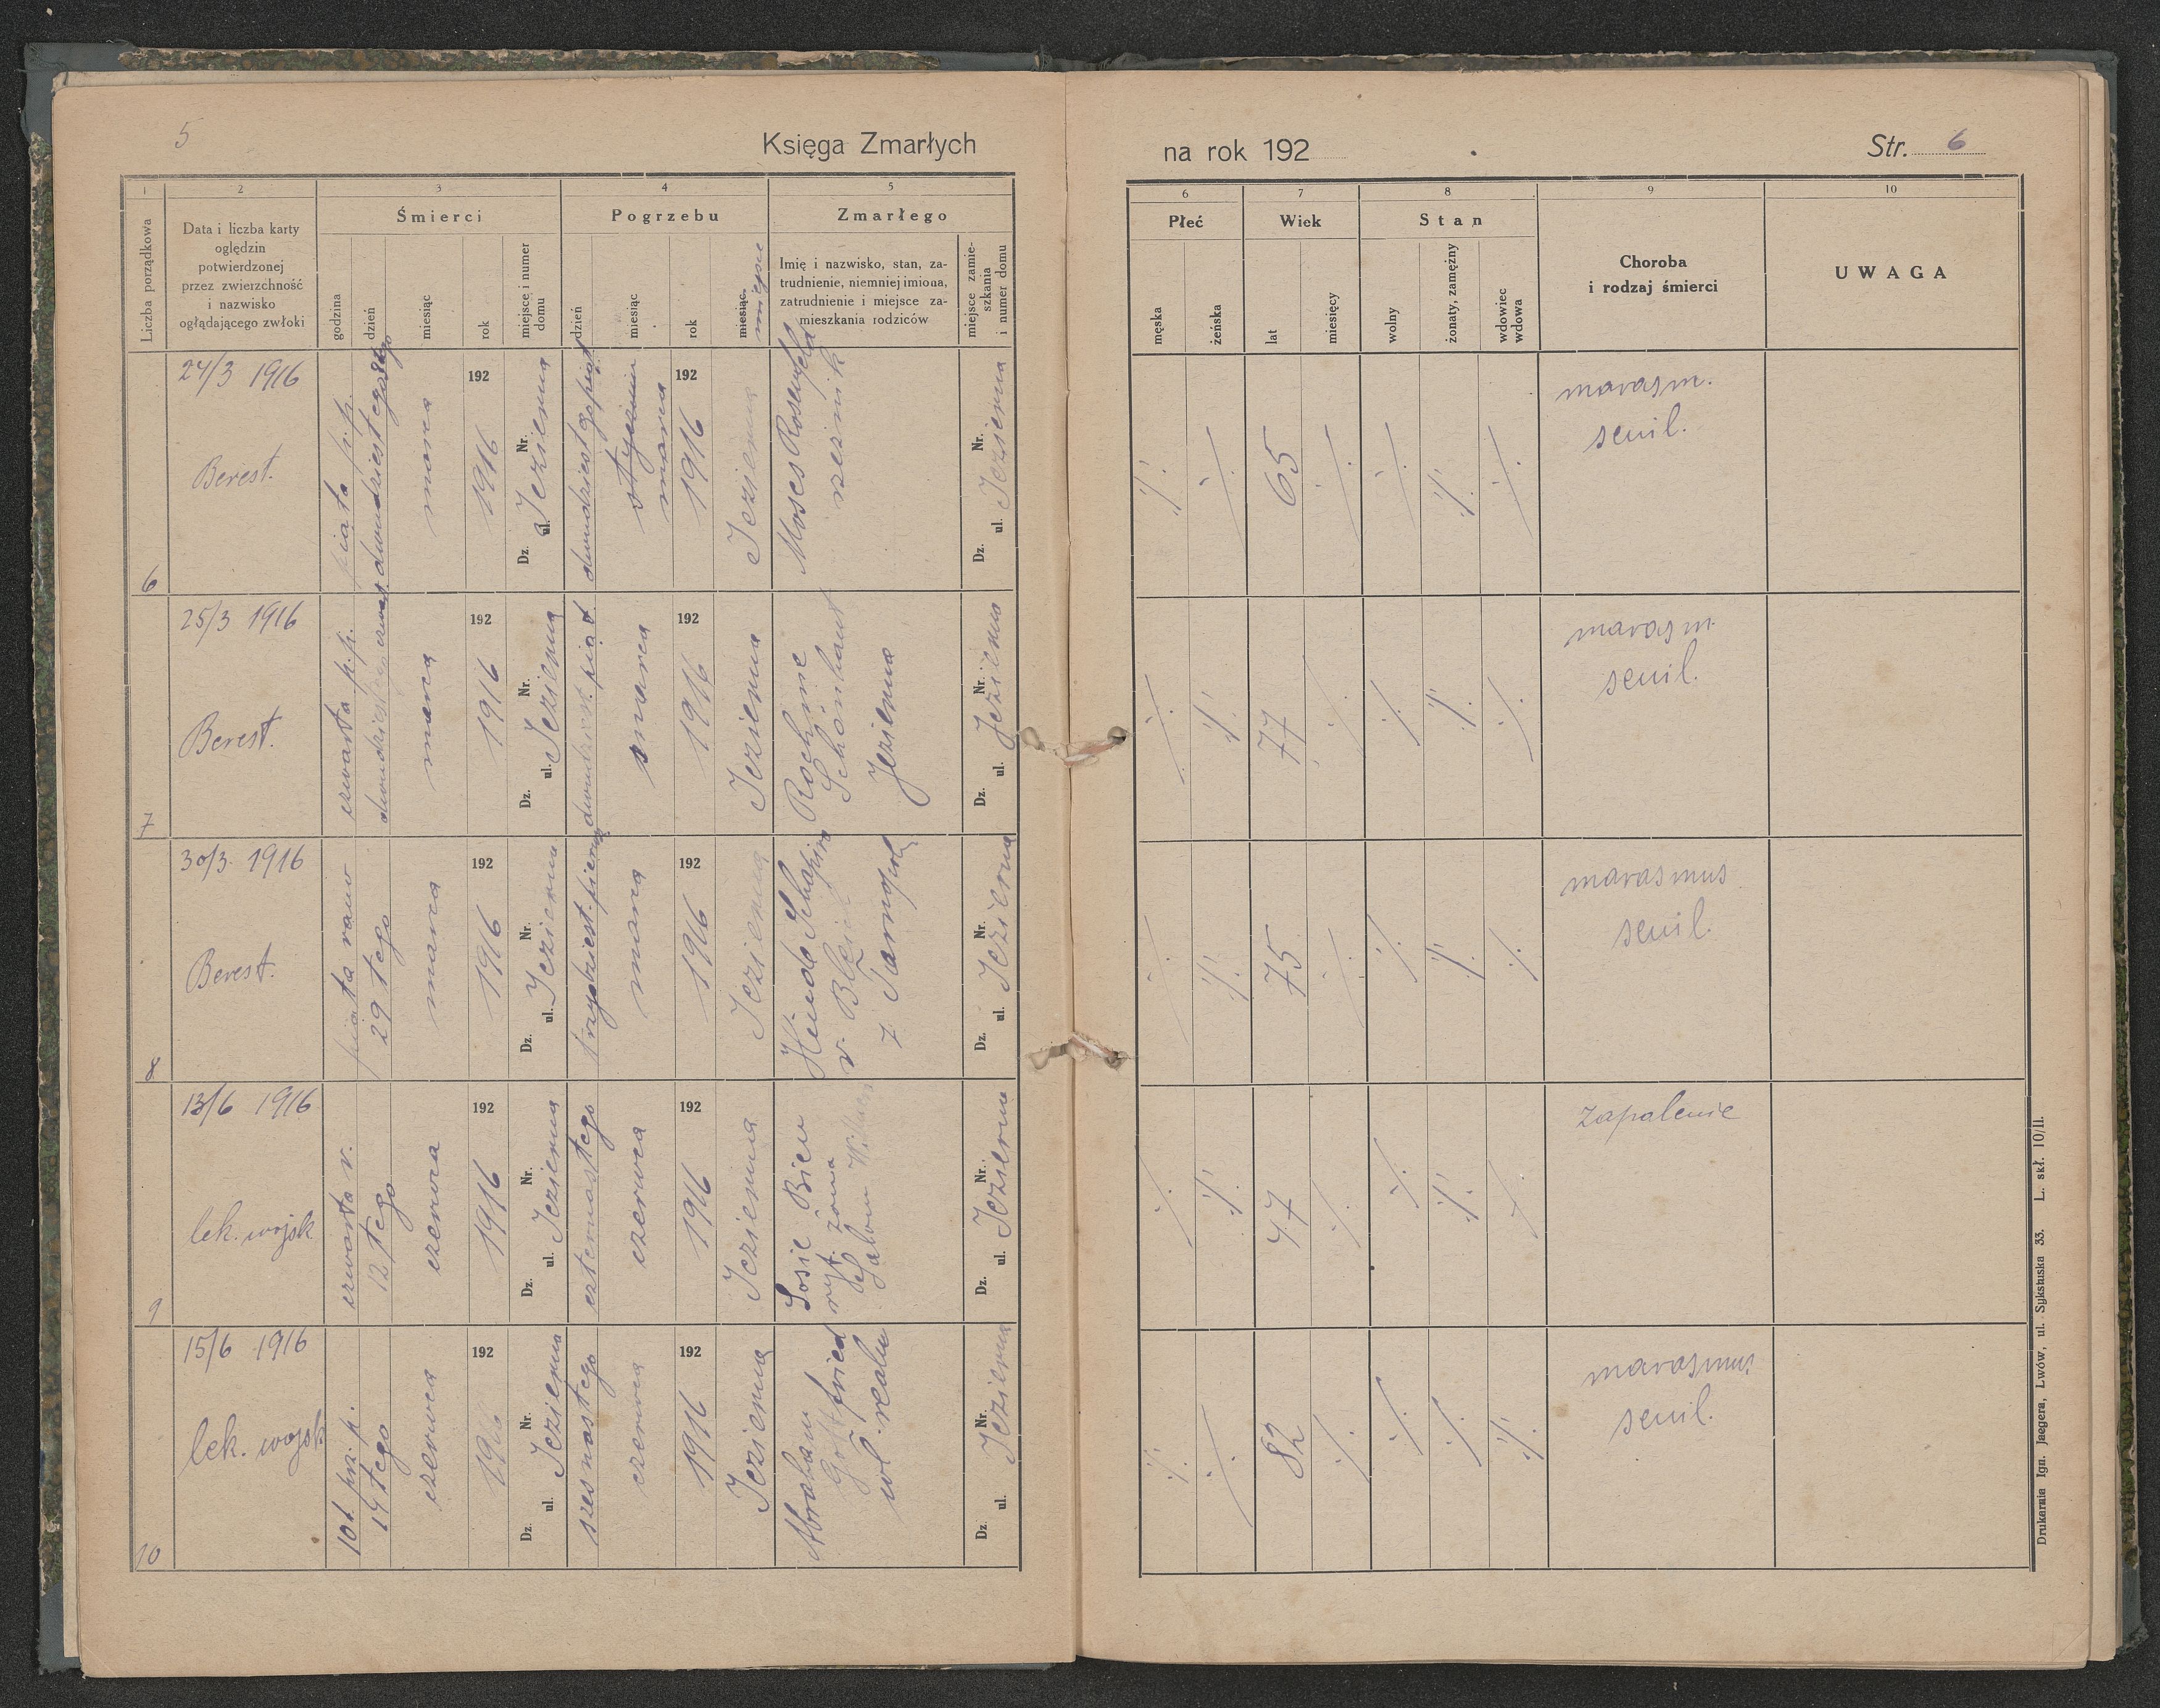 5
Księga Zmarłych
na rok 192
Str. 6
1
2
3
4
5
6
7
8
9
10
Liczba porządkowa
Data i liczba karty
oględzin
potwierdzonej
przez zwierzchność
i nazwisko
oglądającego zwłoki
Śmierci
godzina
dzień
miesiąc
rok
miejsce i numer
domu
Pogrzebu
dzień
miesiąc
rok
miesiąc.
miejsce
Zmarłego
Imię i nazwisko, stan, za-
trudnienie, niemniej imiona,
zatrudnienie i miejsce za-
mieszkania rodziców
miejsce zamie-
szkania
i numer domu
Płeć
męska
żeńska
Wiek
lat
miesięcy
Stan
wolny
żonaty, zamężny
wdowiec
wdowa
Choroba
i rodzaj śmierci
UWAGA
6
24/3 1916
Berest.
piąta p.p.
marca
192
1916
Dz. ul. Nr.
Jezierna
stycznia
marca
192
1916
Jezierna
Moses Rosenfeld
rzeźnik
Dz. ul. Nr.
Jezierna
65
marasm.
senil.
7
25/3 1916
Berest.
czwarta p.p.
marca
192
1916
Dz. ul. Nr.
Jezierna
marca
192
1916
Jezierna
Rochme
Schönhaut
Jezierna
Dz. ul. Nr.
Jezierna
77
marasm.
senil.
8
30/3 1916
Berest.
piąta rano
29 tego
marca
192
1916
Dz. ul. Nr.
Jezierna
marca
192
1916
Jezierna
Hinde Schapira
v. Bleich
z Tarnopola
Dz. ul. Nr.
Jezierna
75
marasmus
senil.
9
13/6 1916
lek. wojsk
czwarta r.
12 tego
czerwca
192
1916
Dz. ul. Nr.
Jezierna
czternastego
czerwca
192
1916
Jezierna
Sosie Bien
ryt. żona
Dz. ul. Nr.
Jezierna
47
zapalenie
10
15/6 1916
lek. wojsk
14 tego
czerwca
192
1916
Dz. ul. Nr.
Jezierna
szesnastego
czerwca
192
1916
Jezierna
Abraham
Gottfried
wł. realn
Dz. ul. Nr.
Jezierna
82
marasmus
senil.
Drukarnia Ign. Jaegera, Lwów, ul. Sykstuska 33. L. skł. 10/II.